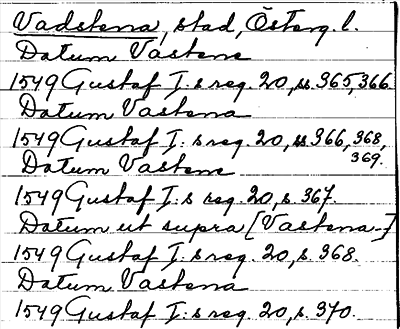 Vadstena, stad, Österg. l.
Datum Vastene
1549 Gustaf I:s reg. 20, ss. 365, 366.
Datum Vastena
1549 Gustaf I:s reg. 20, ss. 366, 368,
369.
Datum Vastene
1549 Gustaf I:s reg. 20, s. 367.
Datum ut supra [Vastena-]
1549 Gustaf I:s reg. 20, s. 368.
Datum Vastena
1549 Gustaf I:s reg. 20, s. 370.